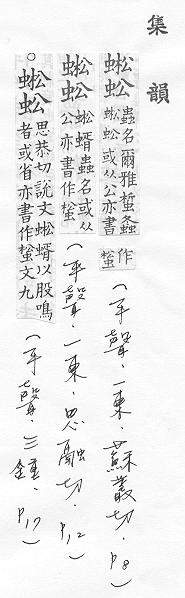 集韻
蜙蚣蟲名爾雅蜇螽蜙蝑或从公亦書作䗥(平聲.一東.蘇叢切.P8)
蜙蚣蜙蝑蟲名或从公亦書作䗥(平聲.一東.思融切.P12)
○蜙蚣思恭切說文蜙蝑以股鳴者或省亦書作䗥文九(平聲.三鍾.P17)